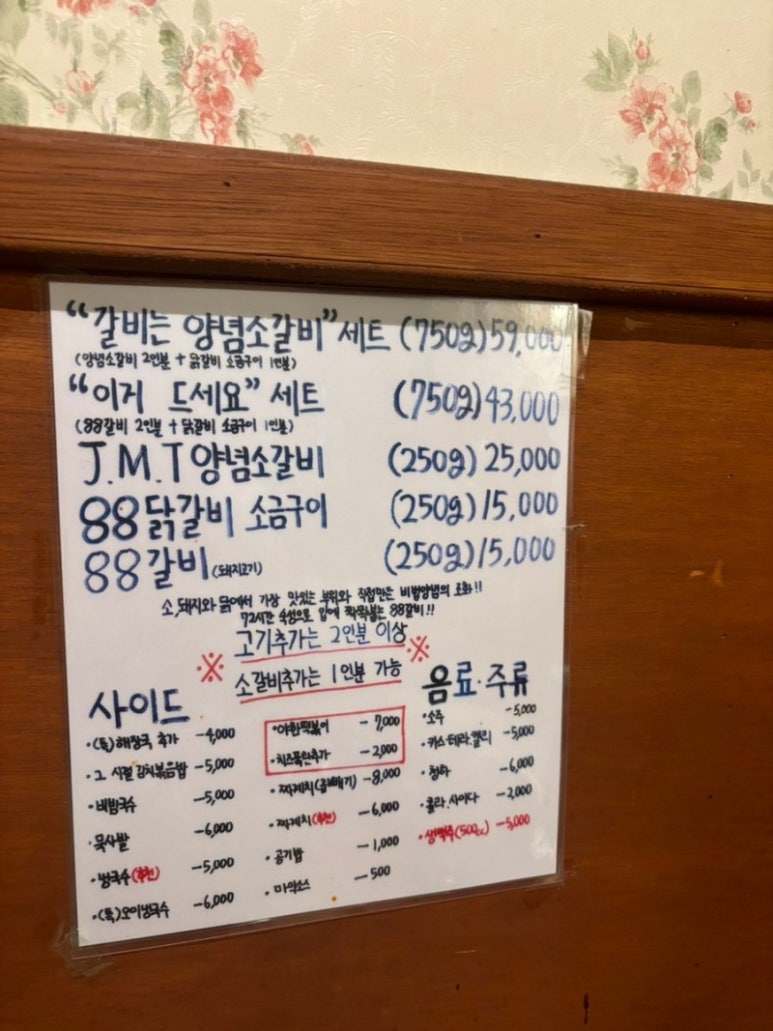 “갈비는 양념소갈비” 세트 (750g) 59,000
(양념소갈비 2인분 + 닭갈비 소금구이 1인분)
“이거 드세요” 세트 (750g) 43,000
(88갈비 2인분 + 닭갈비 소금구이 1인분)
J.M.T 양념소갈비 (250g) 25,000
88닭갈비 소금구이 (250g) 15,000
88갈비 (돼지고기) (250g) 15,000
소, 돼지와 닭에서 가장 맛있는 부위와 직접만든 비법양념의 조화!!
72시간 숙성으로 입에 쫙쫙붙는 88갈비!!
※ 고기추가는 2인분 이상 ※
소갈비추가는 1인분 가능
사이드
·(특)해장국 추가 -4,000
·그 시절 김치볶음밥 -5,000
·비빔국수 -5,000
·묵사발 -6,000
·냉국수(추천) -5,000
·(특)오이냉국수 -6,000
·야한떡볶이 -7,000
·치즈폭탄추가 -2,000
·찌개치(곱빼기) -8,000
·찌개치(추천) -6,000
·공기밥 -1,000
·마약소스 -500
음료·주류
·소주 -5,000
·카스·테라·켈리 -5,000
·청하 -6,000
·콜라.사이다 -2,000
·생맥주(500cc) -5,000